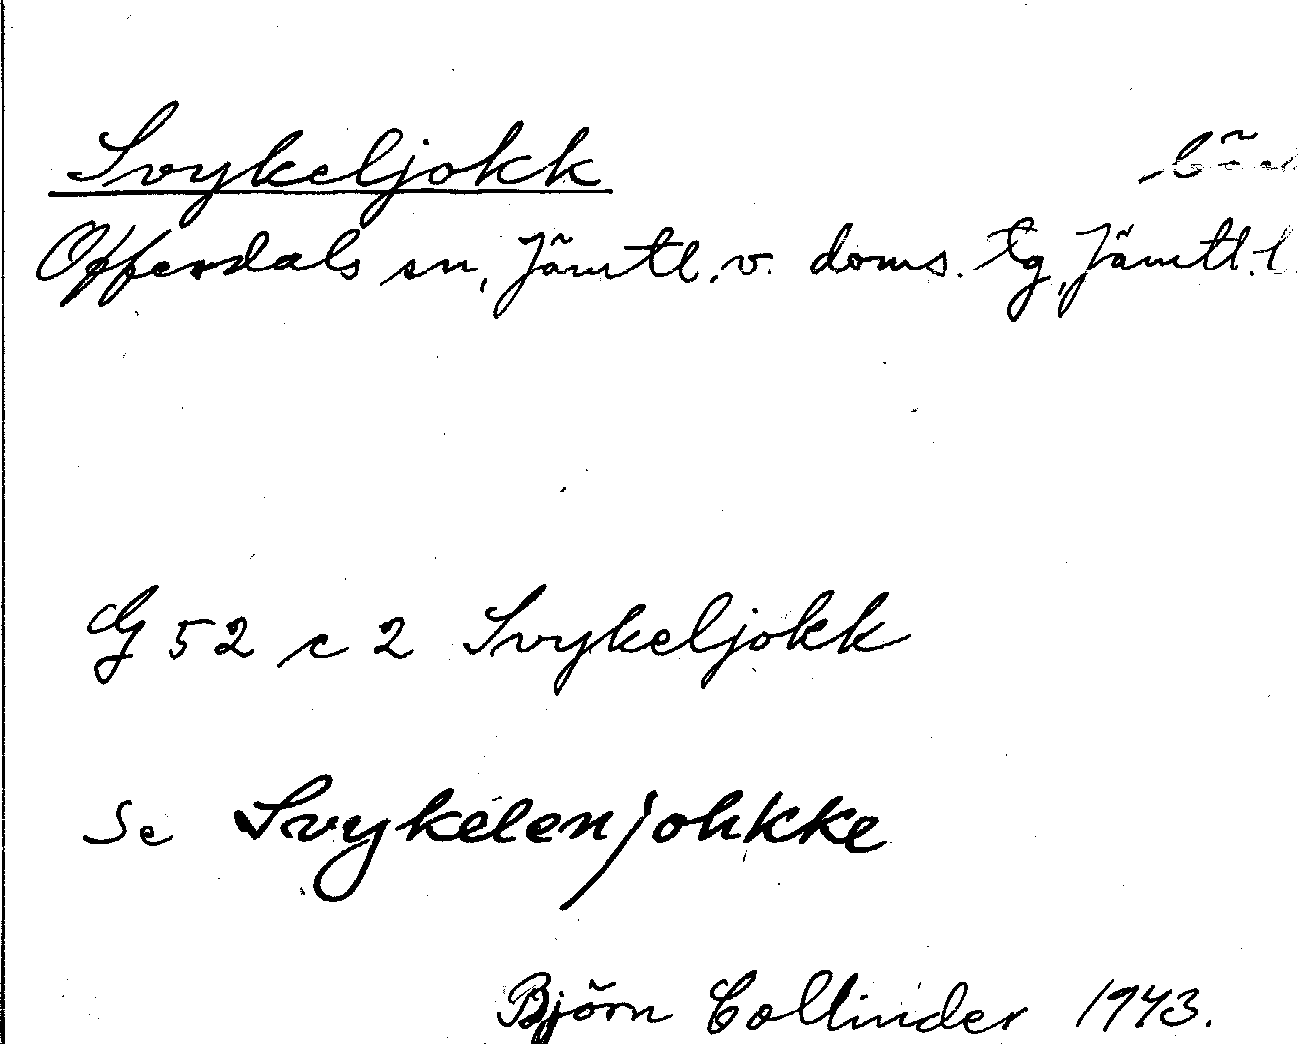 Svykeljokk
Offerdals sn, Jämtl. v. doms. tg, Jämtl. l.
G 52 c 2 Svykeljokk
Se Svykelenjohkke
Björn Collinder 1943.